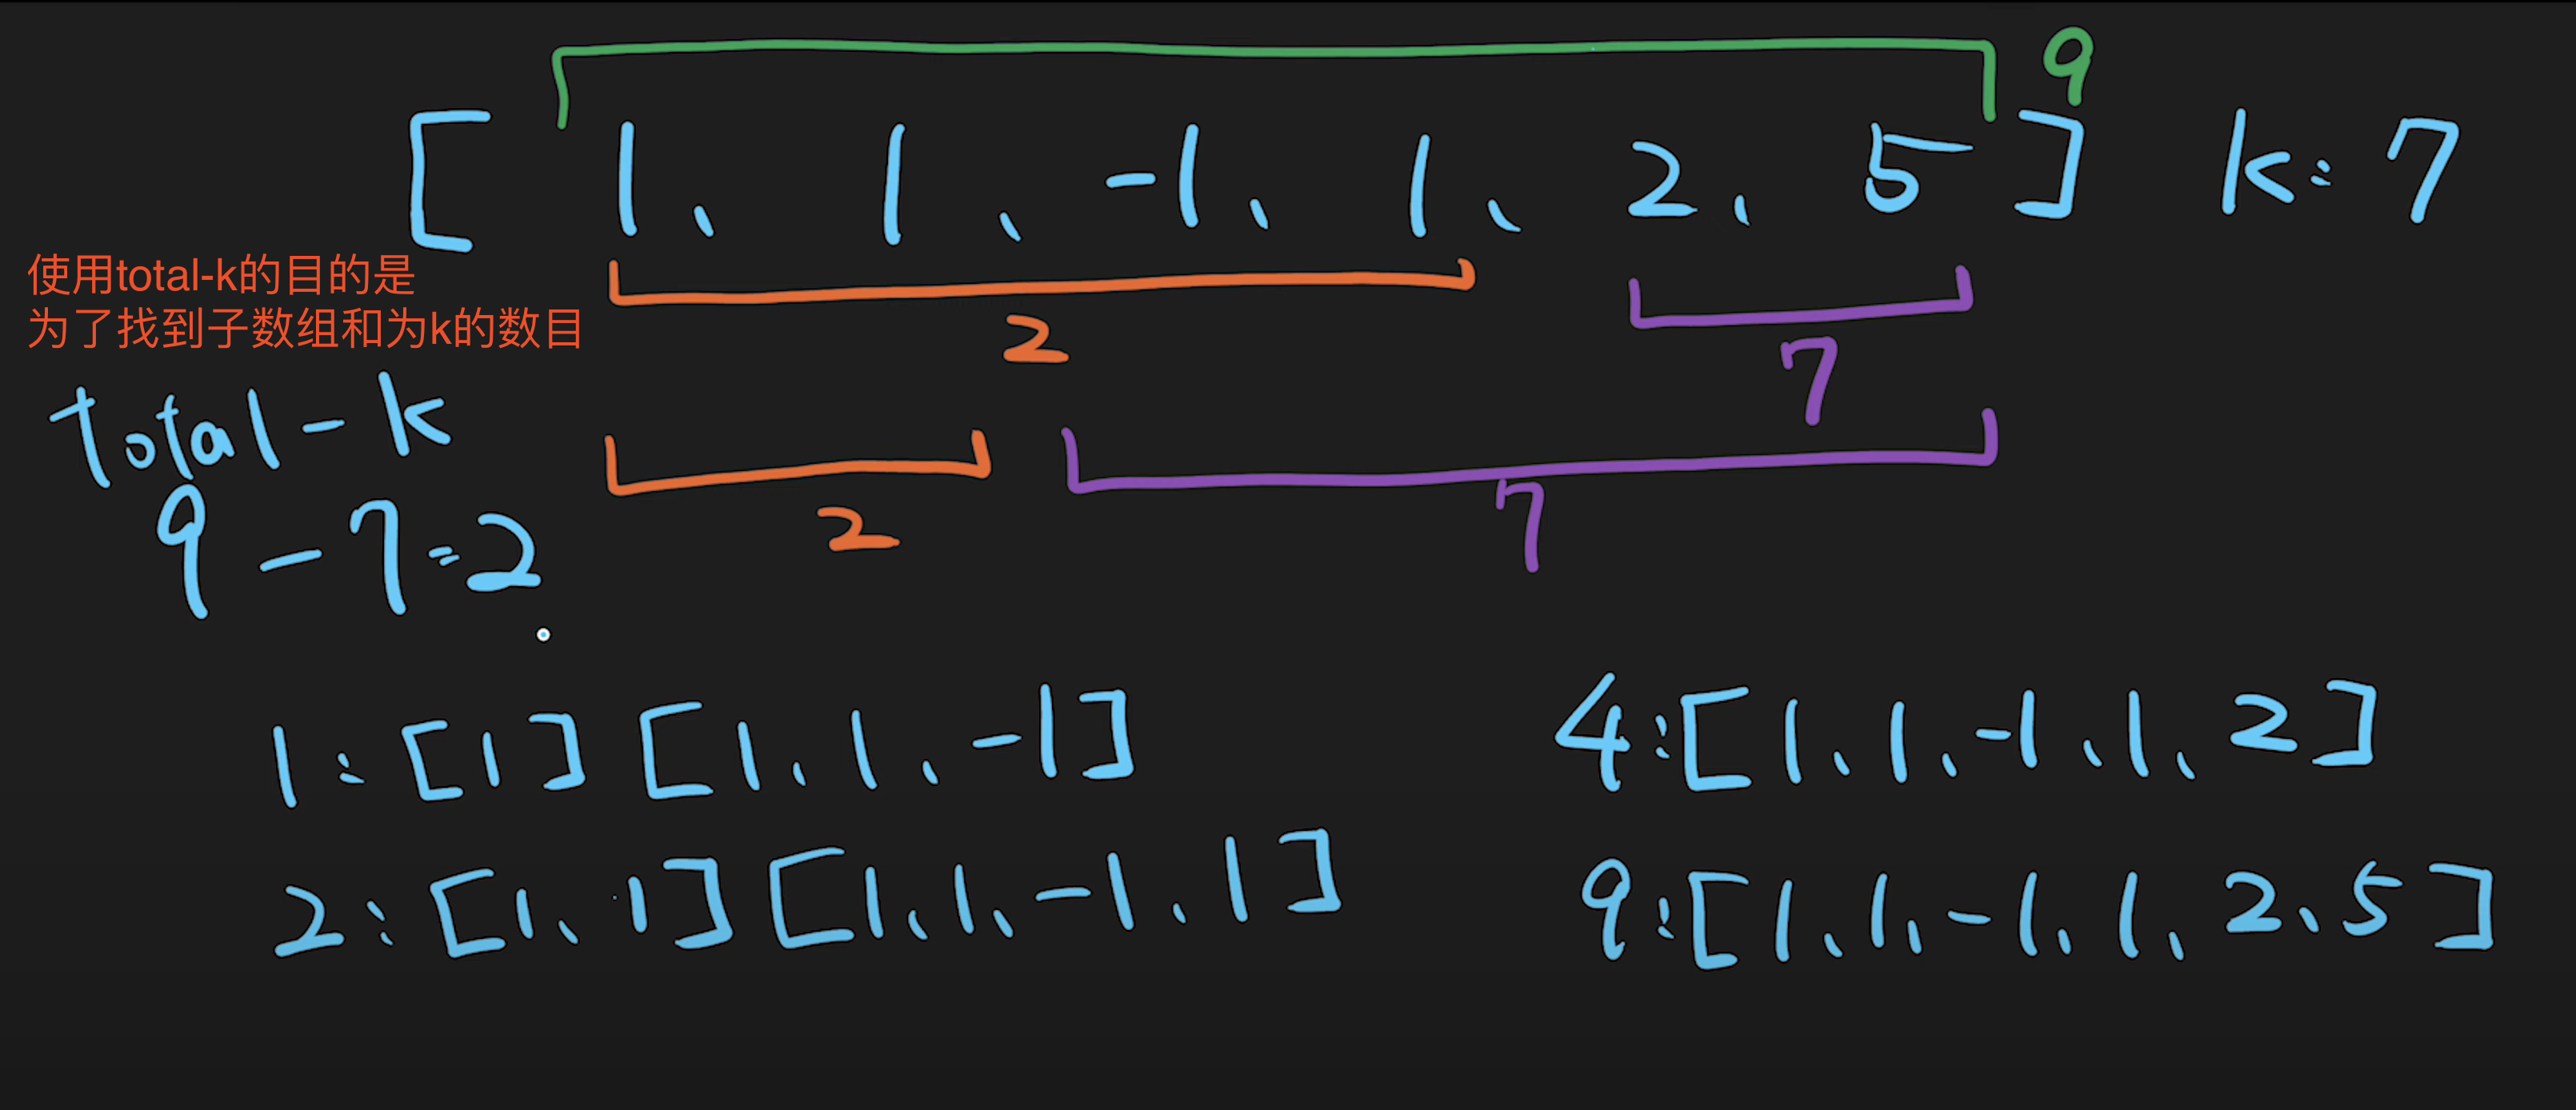 9
[ 1, 1, -1, 1, 2, 5 ] k: 7
使用total-k的目的是
为了找到子数组和为k的数目
2
7
total - k
9 - 7 = 2
2
7
1: [1] [1, 1, -1]
4: [1, 1, -1, 1, 2]
2: [1, 1] [1, 1, -1, 1]
9: [1, 1, -1, 1, 2, 5]